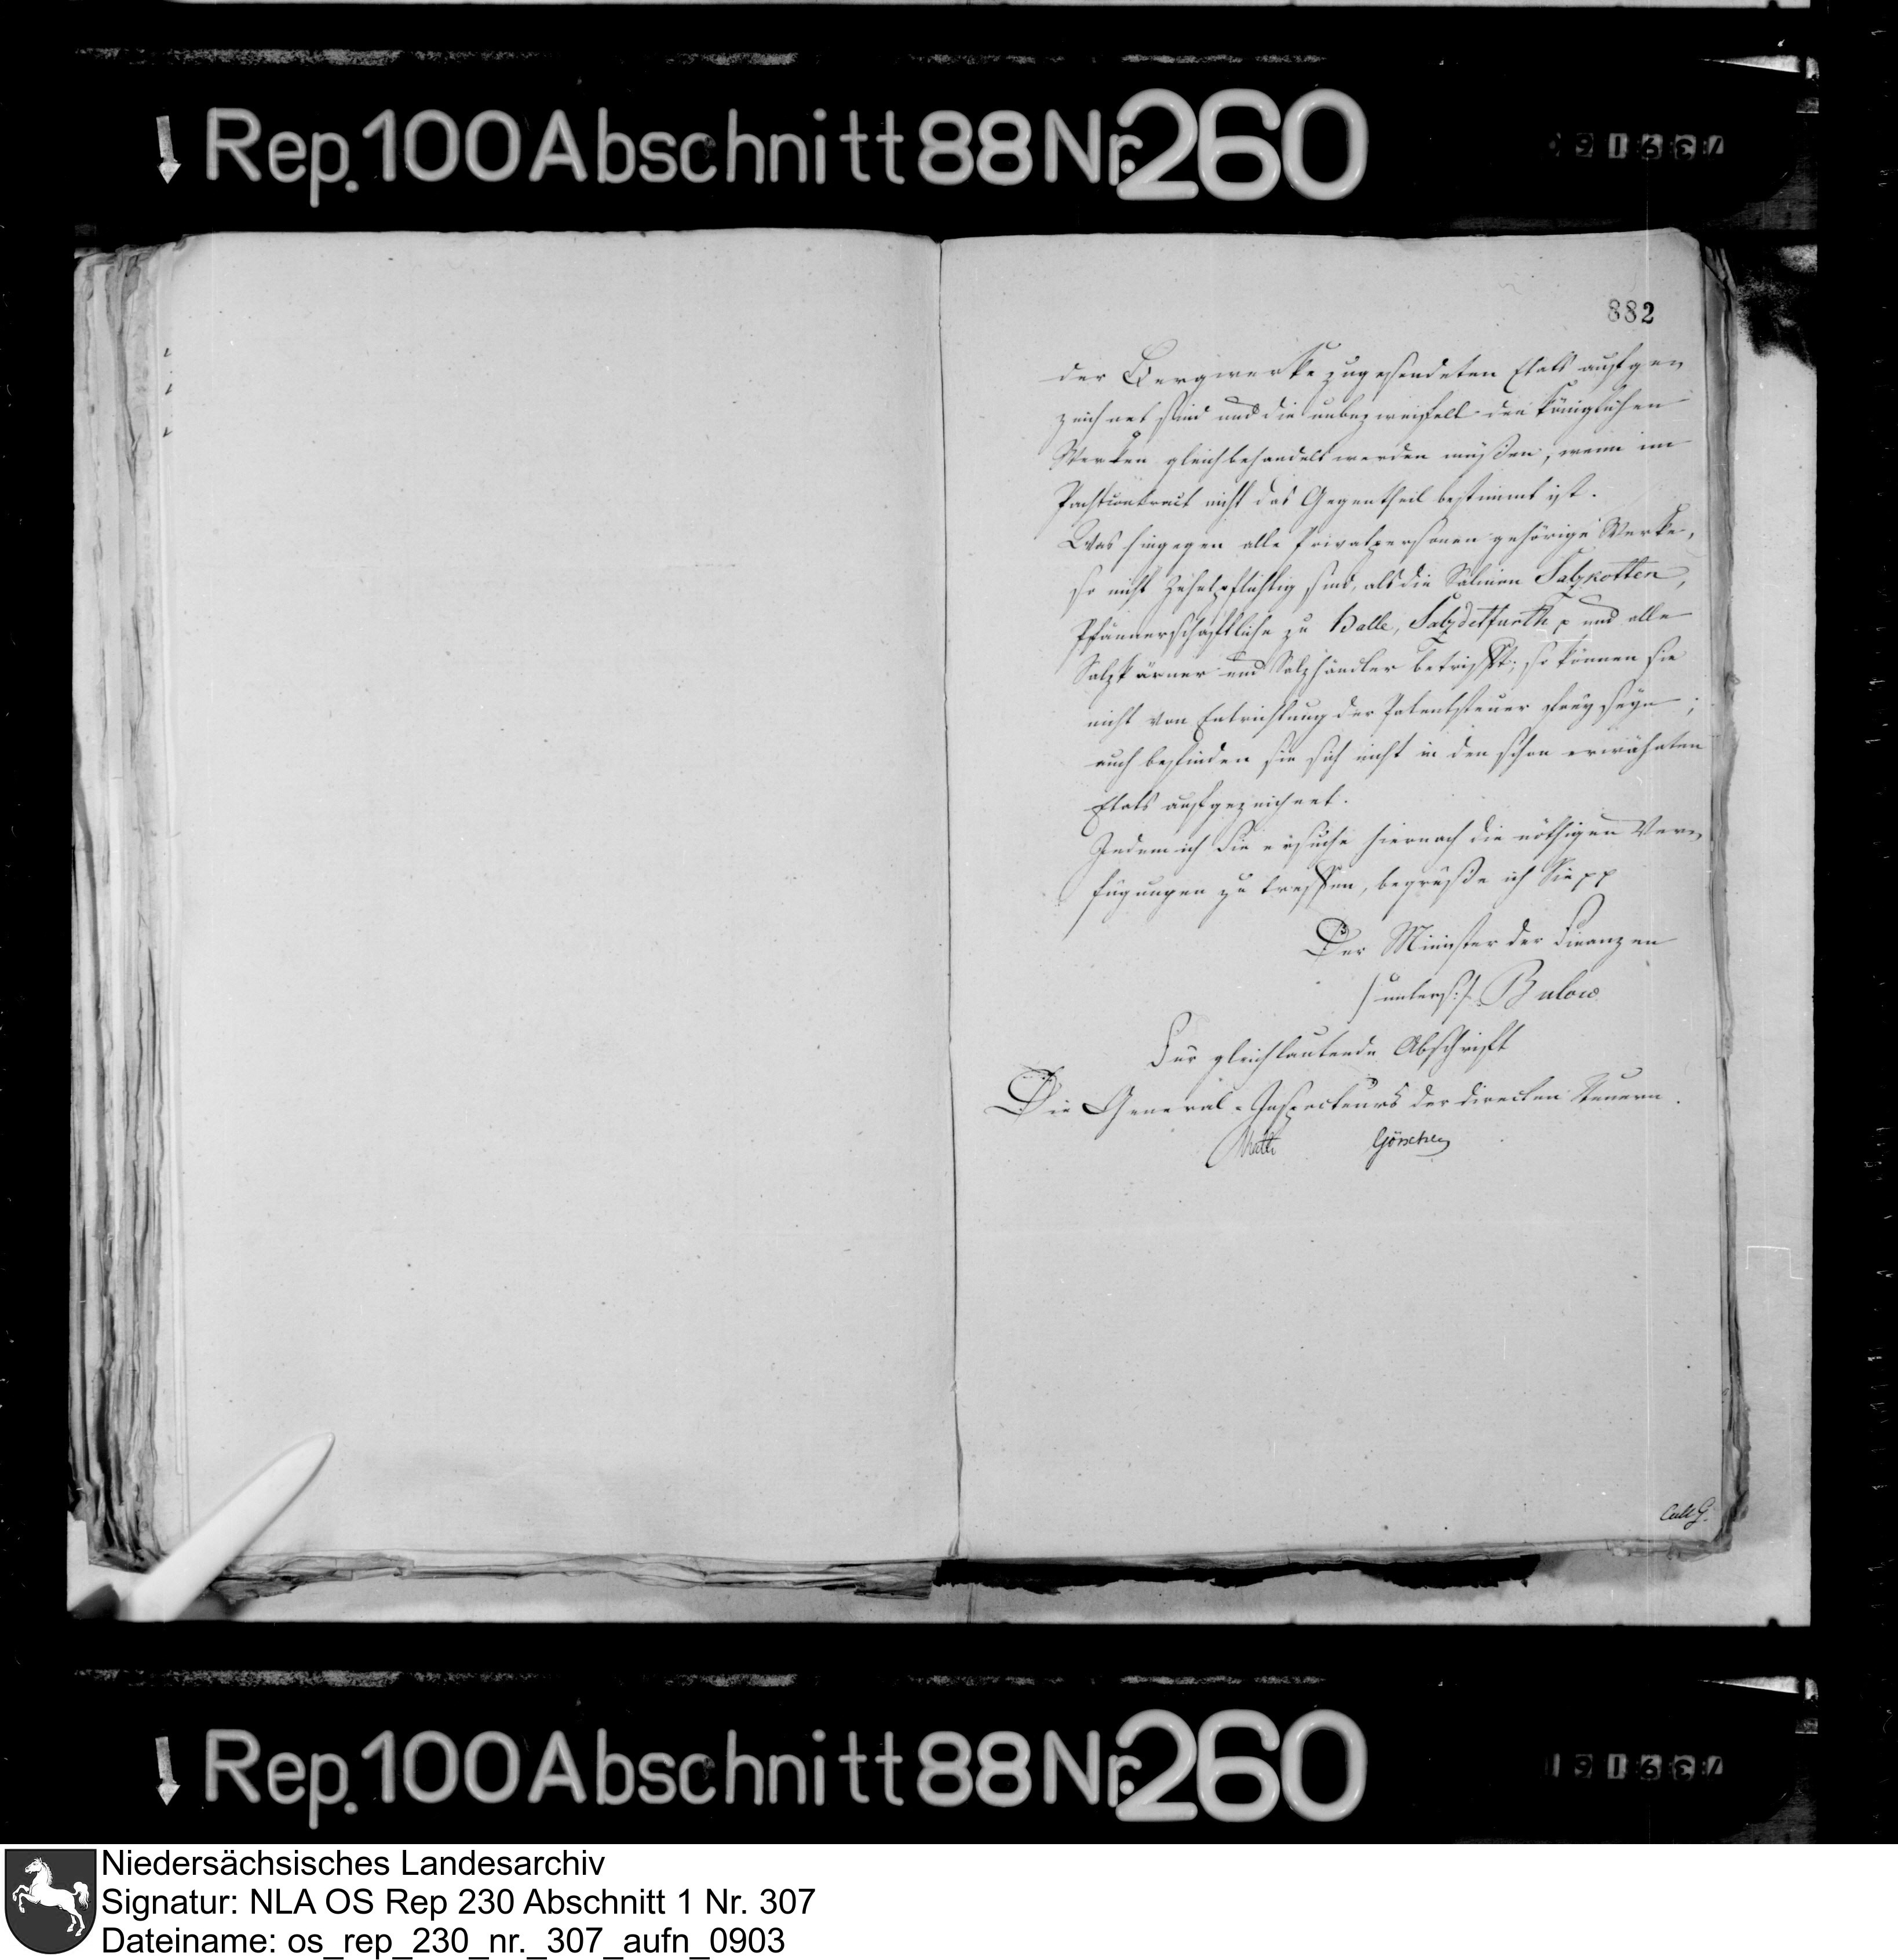 Rep. 100 Abschnitt 88 Nr. 260
882
der Bergwerke zugesendeten Etats aufge-
zeichnet sind und die unbezweifelt den Königlichen
Werken gleichbehandelt werden müßen, wenn im
Pachtcontract nicht das Gegentheil bestimmt ist.
Was hingegen alle Privatpersonen gehörige Werke,
so nicht Zehntpflichtig sind, als die Salinen Salzkotten,
Pfännerschaftliche zu Halle, Salzdetfurth p und alle
Salzkärner und Salzhändler betrifft; so können sie
nicht von Entrichtung der Patentsteuer frey seyn;
auch befinden sie sich nicht in den schon erwähnten
Etats aufgezeichnet.
Indem ich Sie ersuche hiernach die nöthigen Ver-
fügungen zu treffen, begrüße ich Sie pp
Der Minister der Finanzen
/unters:/ Bulow
Für gleichlautende Abschrift
Die General-Inspecteurs der directen Steuern.
Göschen
Rep. 100 Abschnitt 88 Nr. 260
Niedersächsisches Landesarchiv
Signatur: NLA OS Rep 230 Abschnitt 1 Nr. 307
Dateiname: os_rep_230_nr._307_aufn_0903